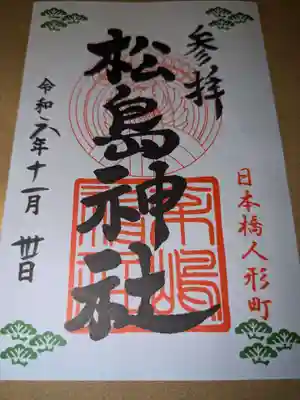 参拝
日本橋人形町
松島神社
令和六年十一月卅日